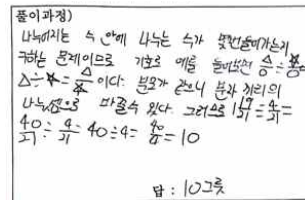 풀이과정)
나누어지는 수 안에 나누는 수가 몇번들어가는지
구하는 문제이므로 기호로 예를 들어보면
△÷☆=△/☆ 이다. 분모가 같으니 분자끼리의
나눗셈으로 바꿀수 있다. 그러므로 1 19/21÷4/21=
40/21÷4/21=40÷4=40/4=10
답: 10그릇